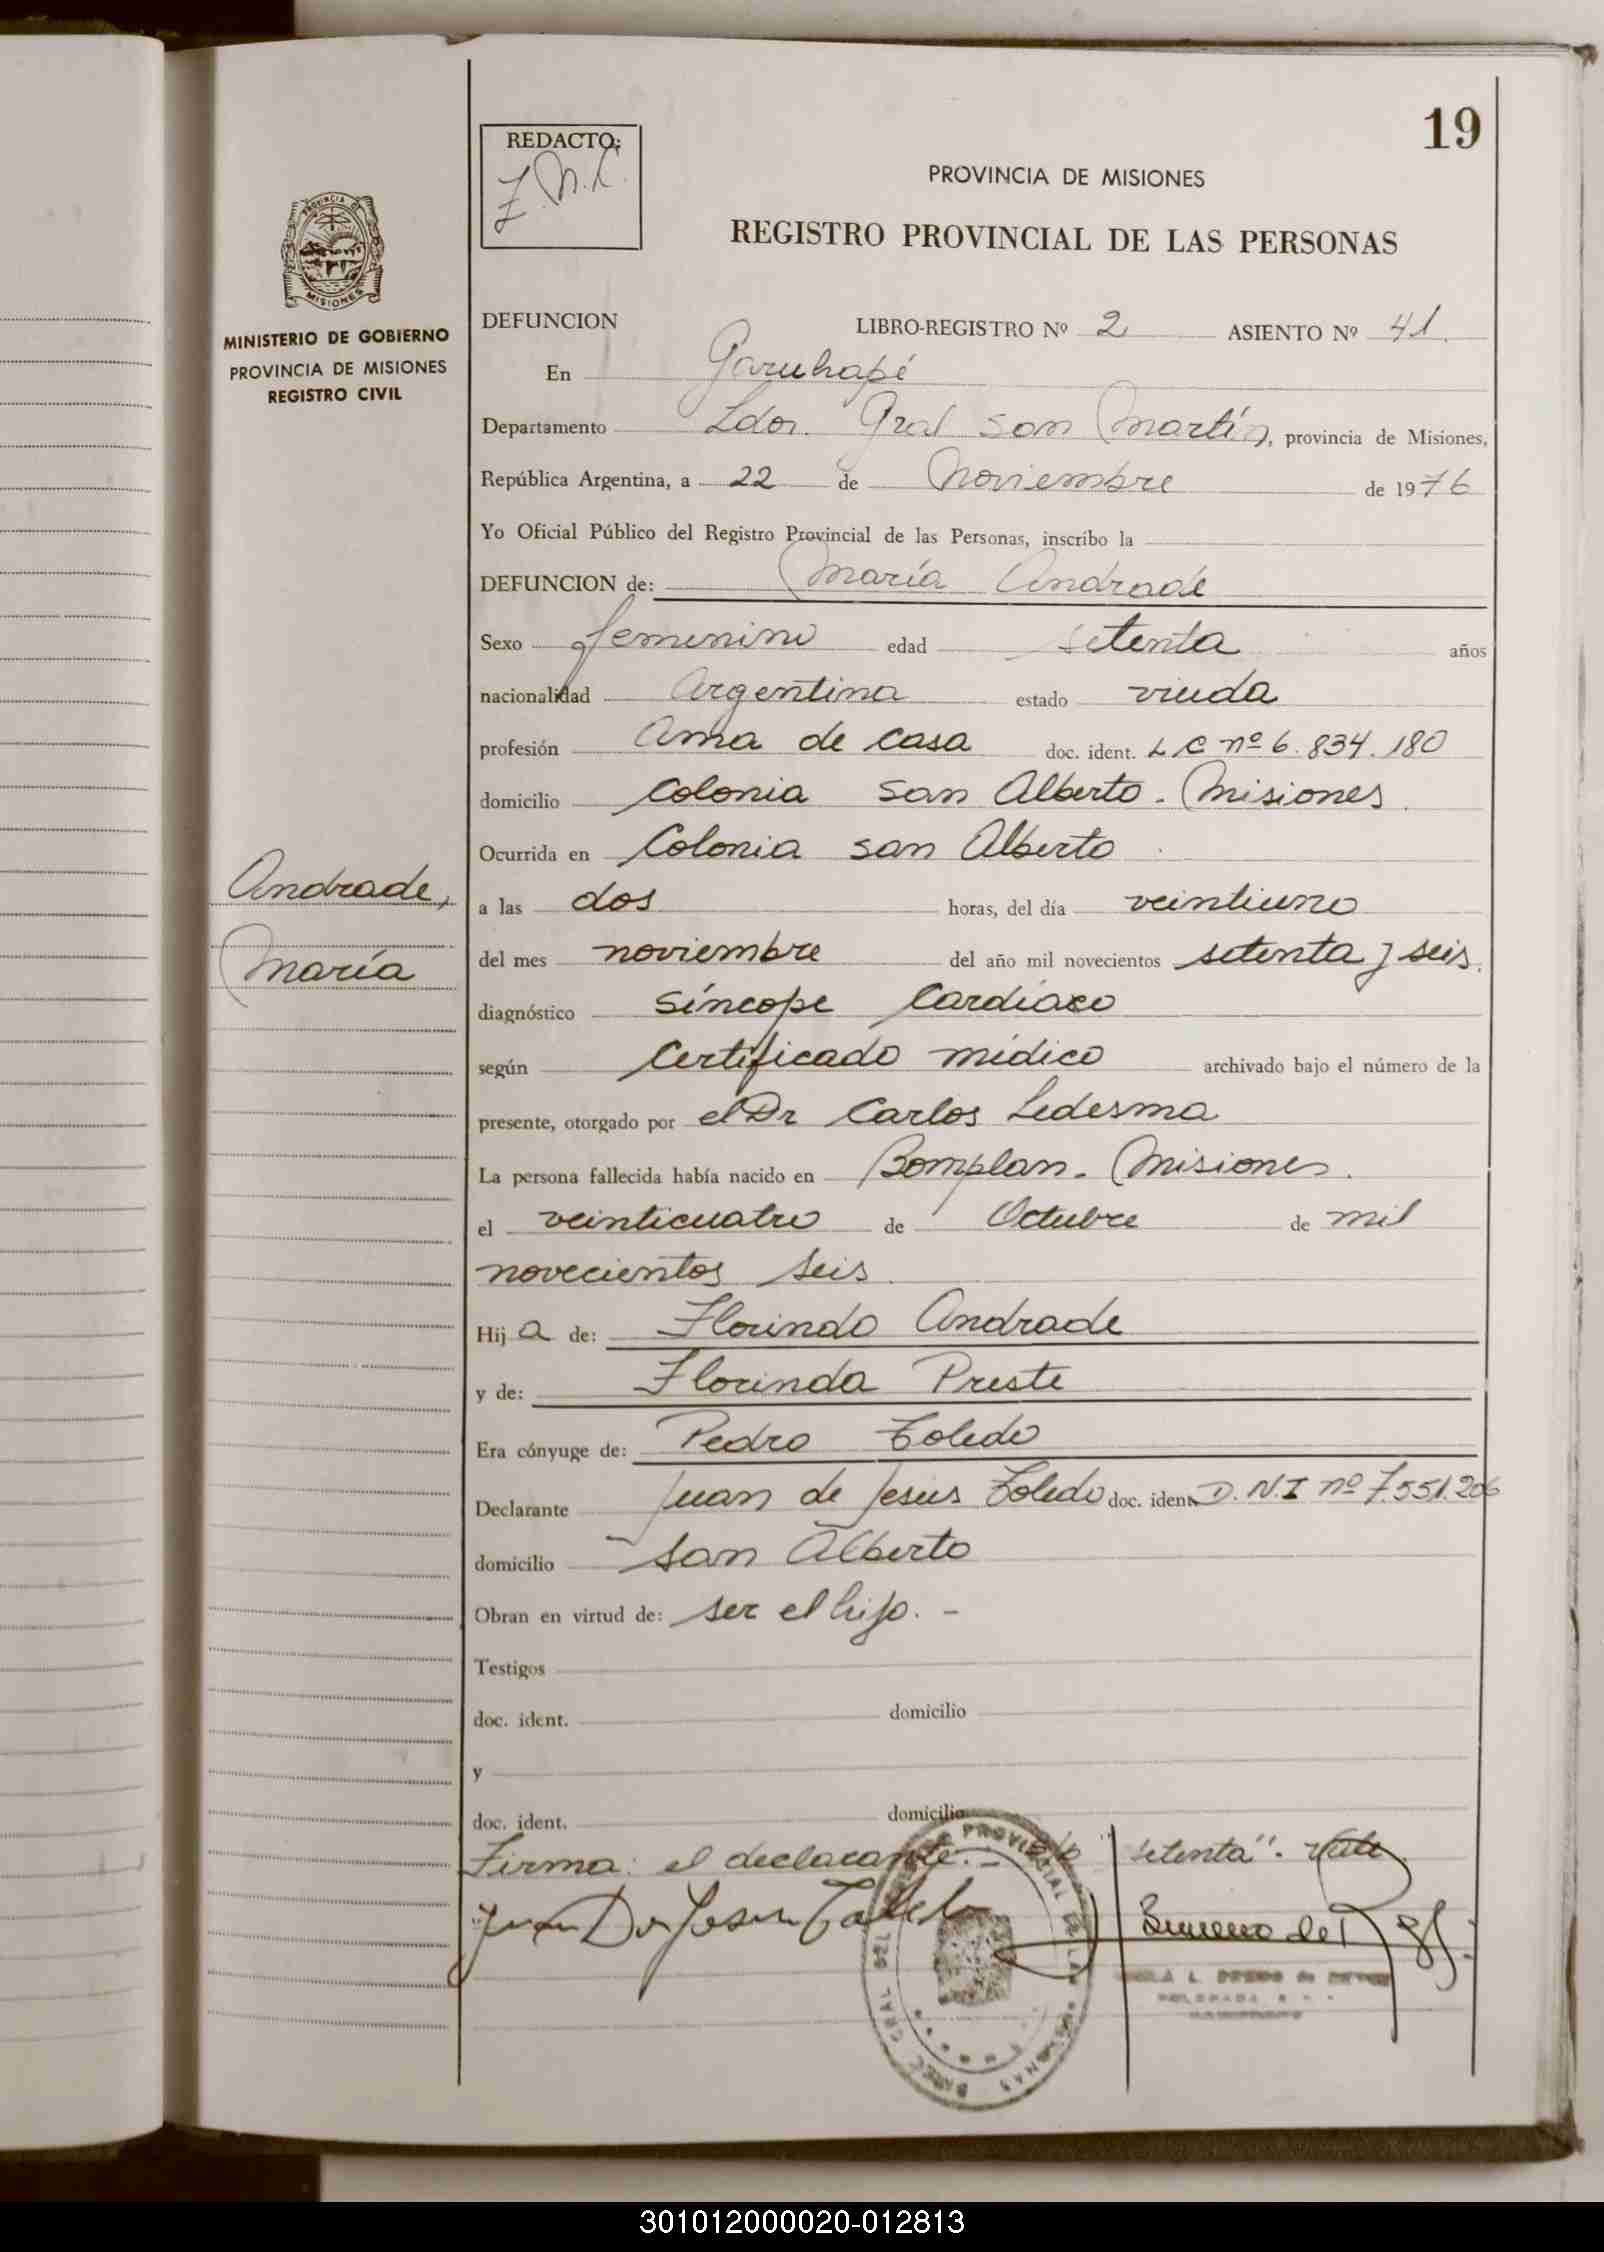 19
REDACTO:
Z.M.C.
PROVINCIA DE MISIONES
REGISTRO PROVINCIAL DE LAS PERSONAS
PROVINCIA DE
MISIONES
MINISTERIO DE GOBIERNO
PROVINCIA DE MISIONES
REGISTRO CIVIL
DEFUNCION LIBRO-REGISTRO Nº 2 ASIENTO Nº 41
En Garuhapé
Departamento Ldor. Gral San Martín, provincia de Misiones,
República Argentina, a 22 de Noviembre de 1976
Yo Oficial Público del Registro Provincial de las Personas, inscribo la
DEFUNCION de: María Andrade
Sexo femenino edad setenta años
nacionalidad Argentina estado viuda
profesión Ama de casa doc. ident. L C nº 6.834.180
domicilio Colonia San Alberto - Misiones.
Ocurrida en Colonia San Alberto
Andrade,
María
a las dos horas, del día veintiuno
del mes noviembre del año mil novecientos setenta y seis.
diagnóstico síncope Cardíaco
según Certificado médico archivado bajo el número de la
presente, otorgado por el Dr Carlos Ledesma
La persona fallecida había nacido en Bomplan - Misiones.
el veinticuatro de Octubre de mil
novecientos seis
Hij a de: Florindo Andrade
y de: Florinda Preste
Era cónyuge de: Pedro Toledo
Declarante Juan de Jesús Toledo doc. ident. D.N.I nº 7.551.206
domicilio San Alberto
Obran en virtud de: ser el hijo. -
Testigos
doc. ident. domicilio
y
doc. ident. domicilio
Firma: el declarante. - "setenta". Vale
Juan De Jesus Toledo
301012000020-012813